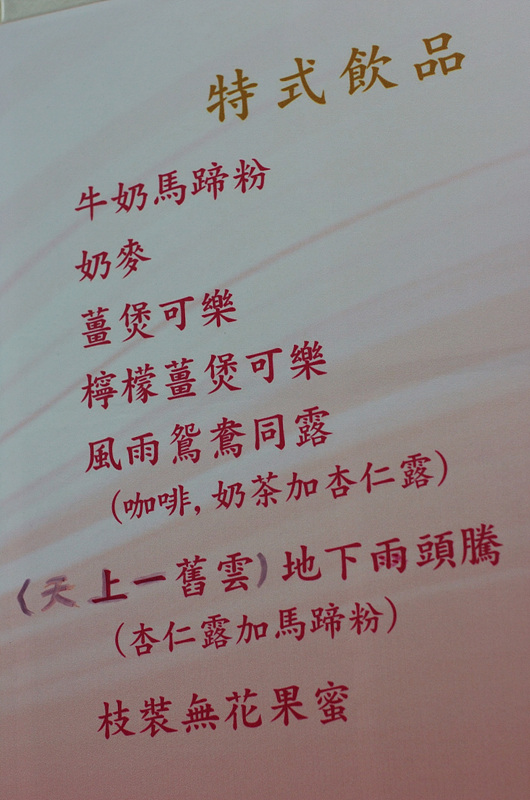 特式飲品
牛奶馬蹄粉
奶麥
薑煲可樂
檸檬薑煲可樂
風雨鴛鴦同露
(咖啡, 奶茶加杏仁露)
(天上一舊雲) 地下兩頭騰
(杏仁露加馬蹄粉)
枝裝無花果蜜